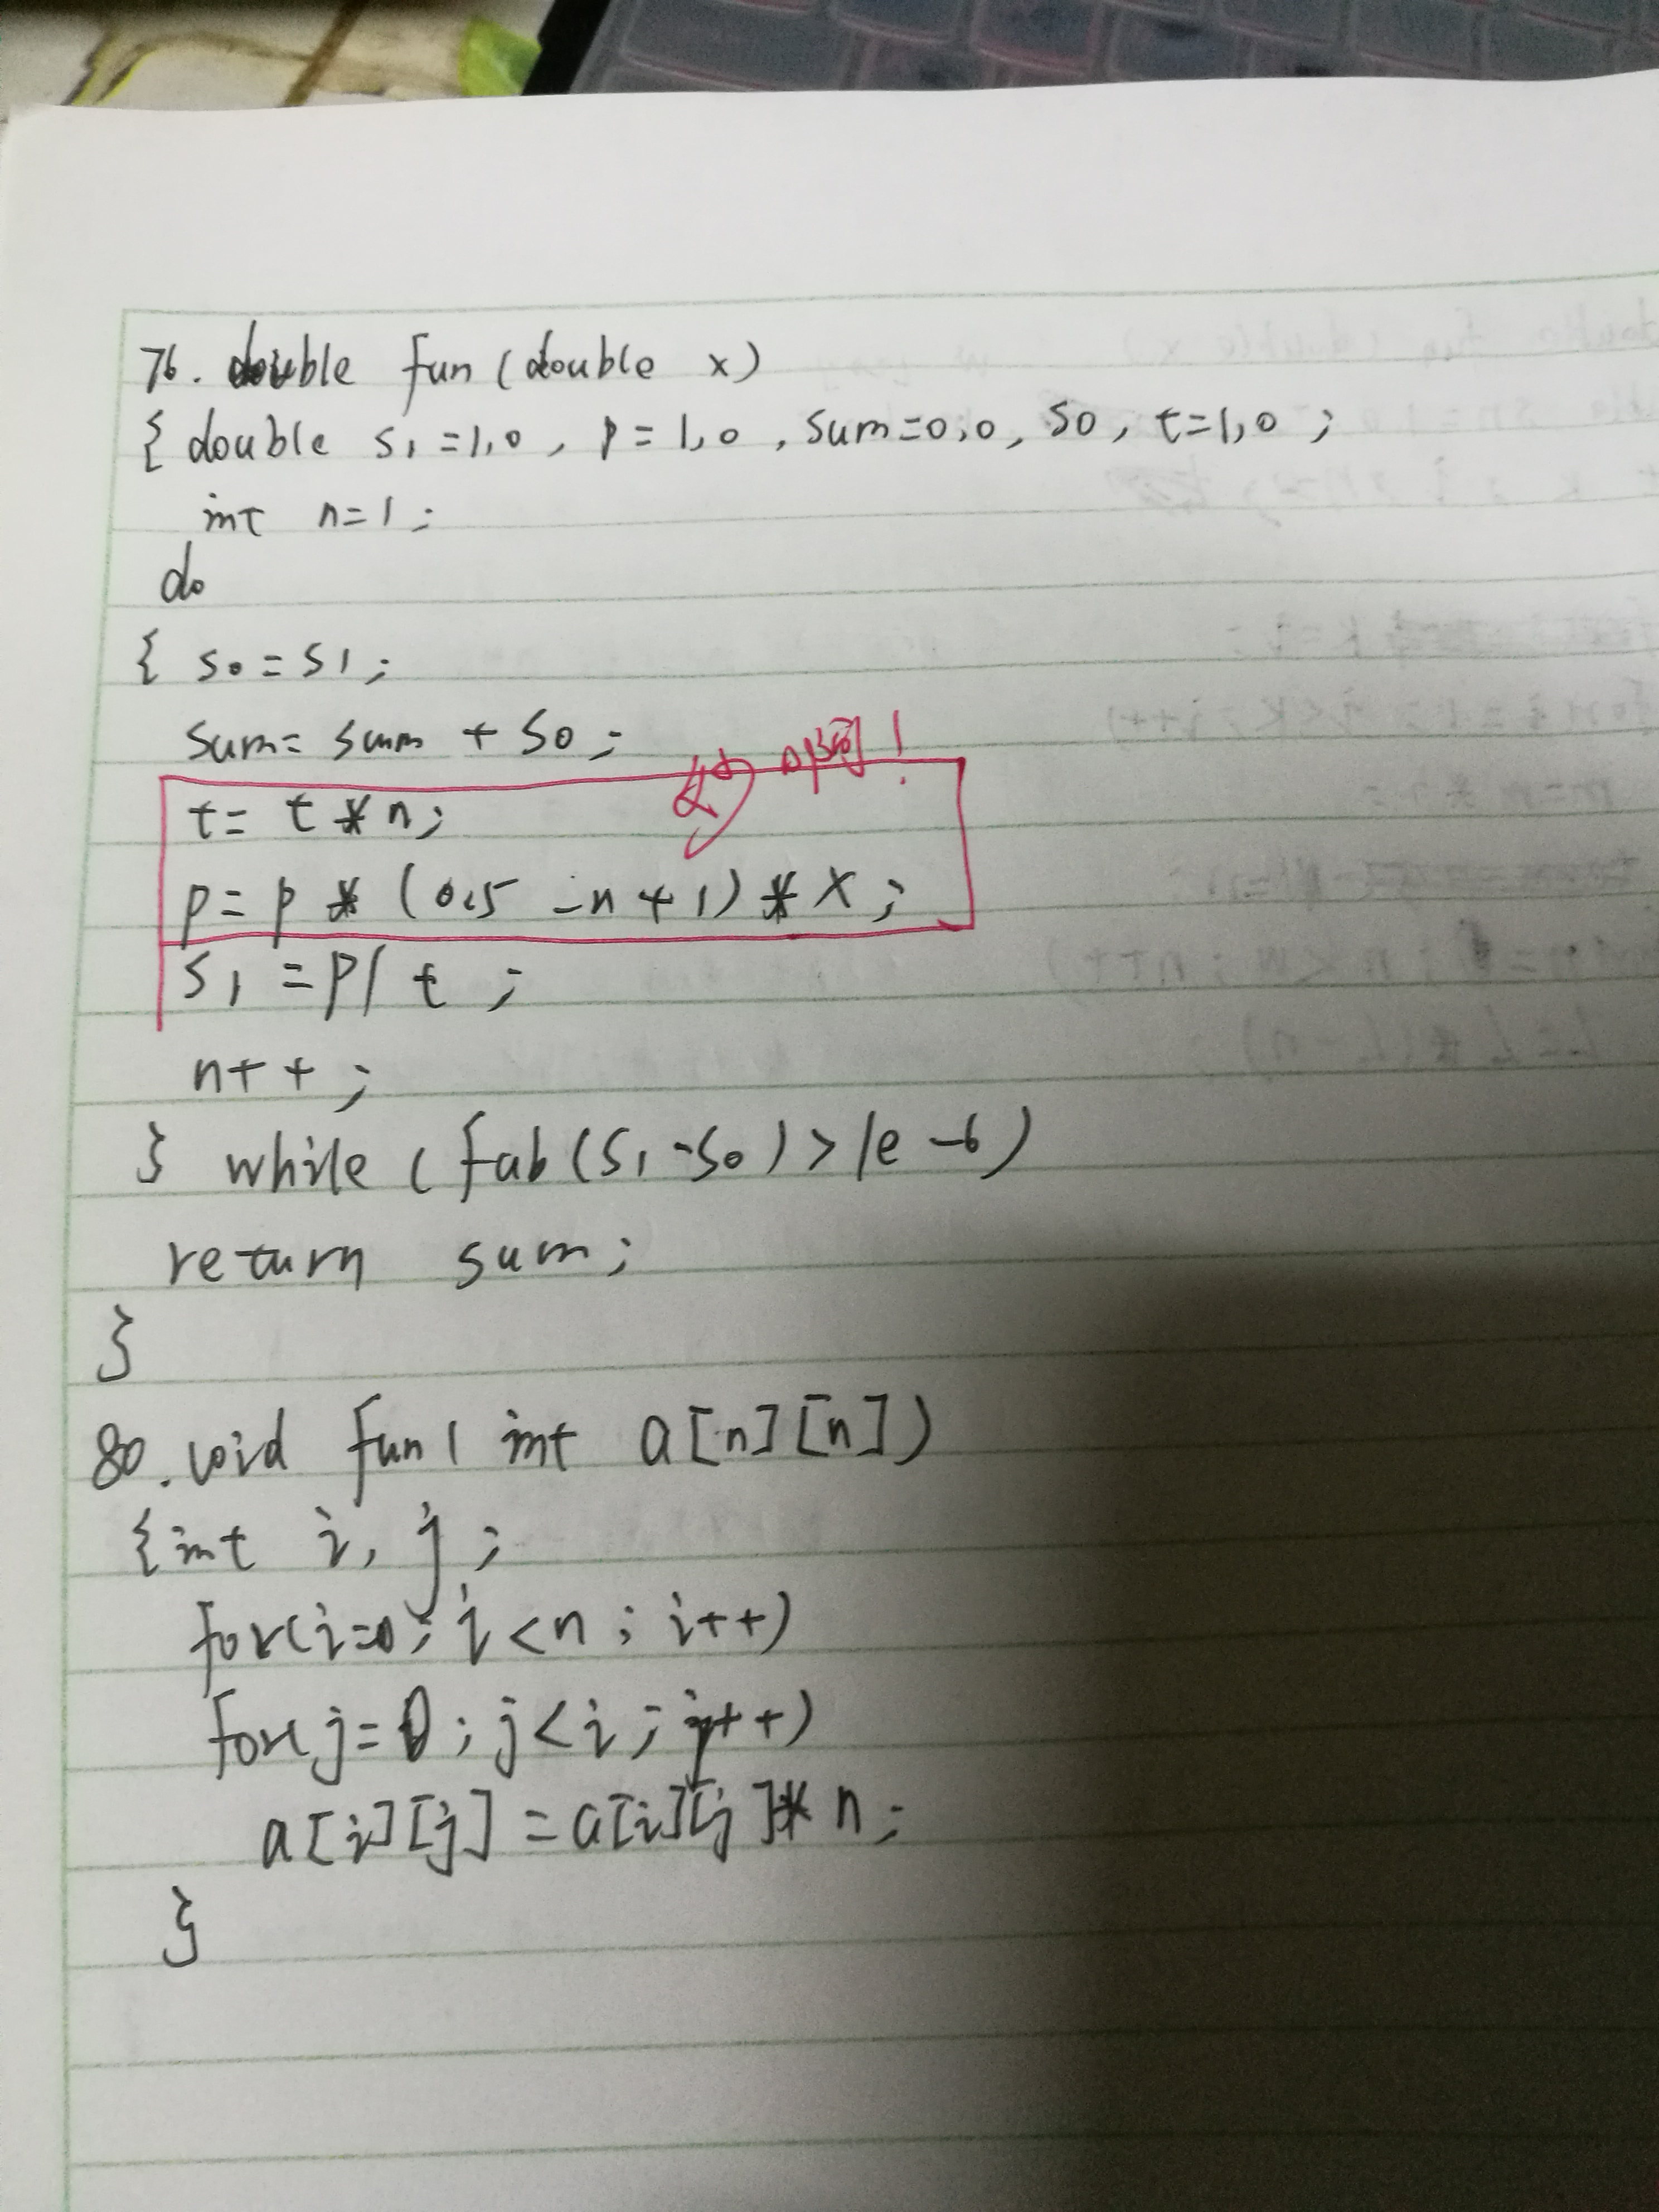 76. double fun (double x)
{ double s1=1.0, p=1.0, sum=0.0, s0, t=1.0;
int n=1;
do
{ s0=s1;
sum= sum + s0;
妙啊!
t= t*n;
p= p * (0.5 -n+1)*x;
s1 =p/ t;
n++;
} while (fab(s1-s0)>1e-6)
return sum;
}
80. void fun( int a[n][n])
{int i, j;
for(i=0; i<n; i++)
for(j=0; j<i; j++)
a[i][j] =a[i][j]* n;
}